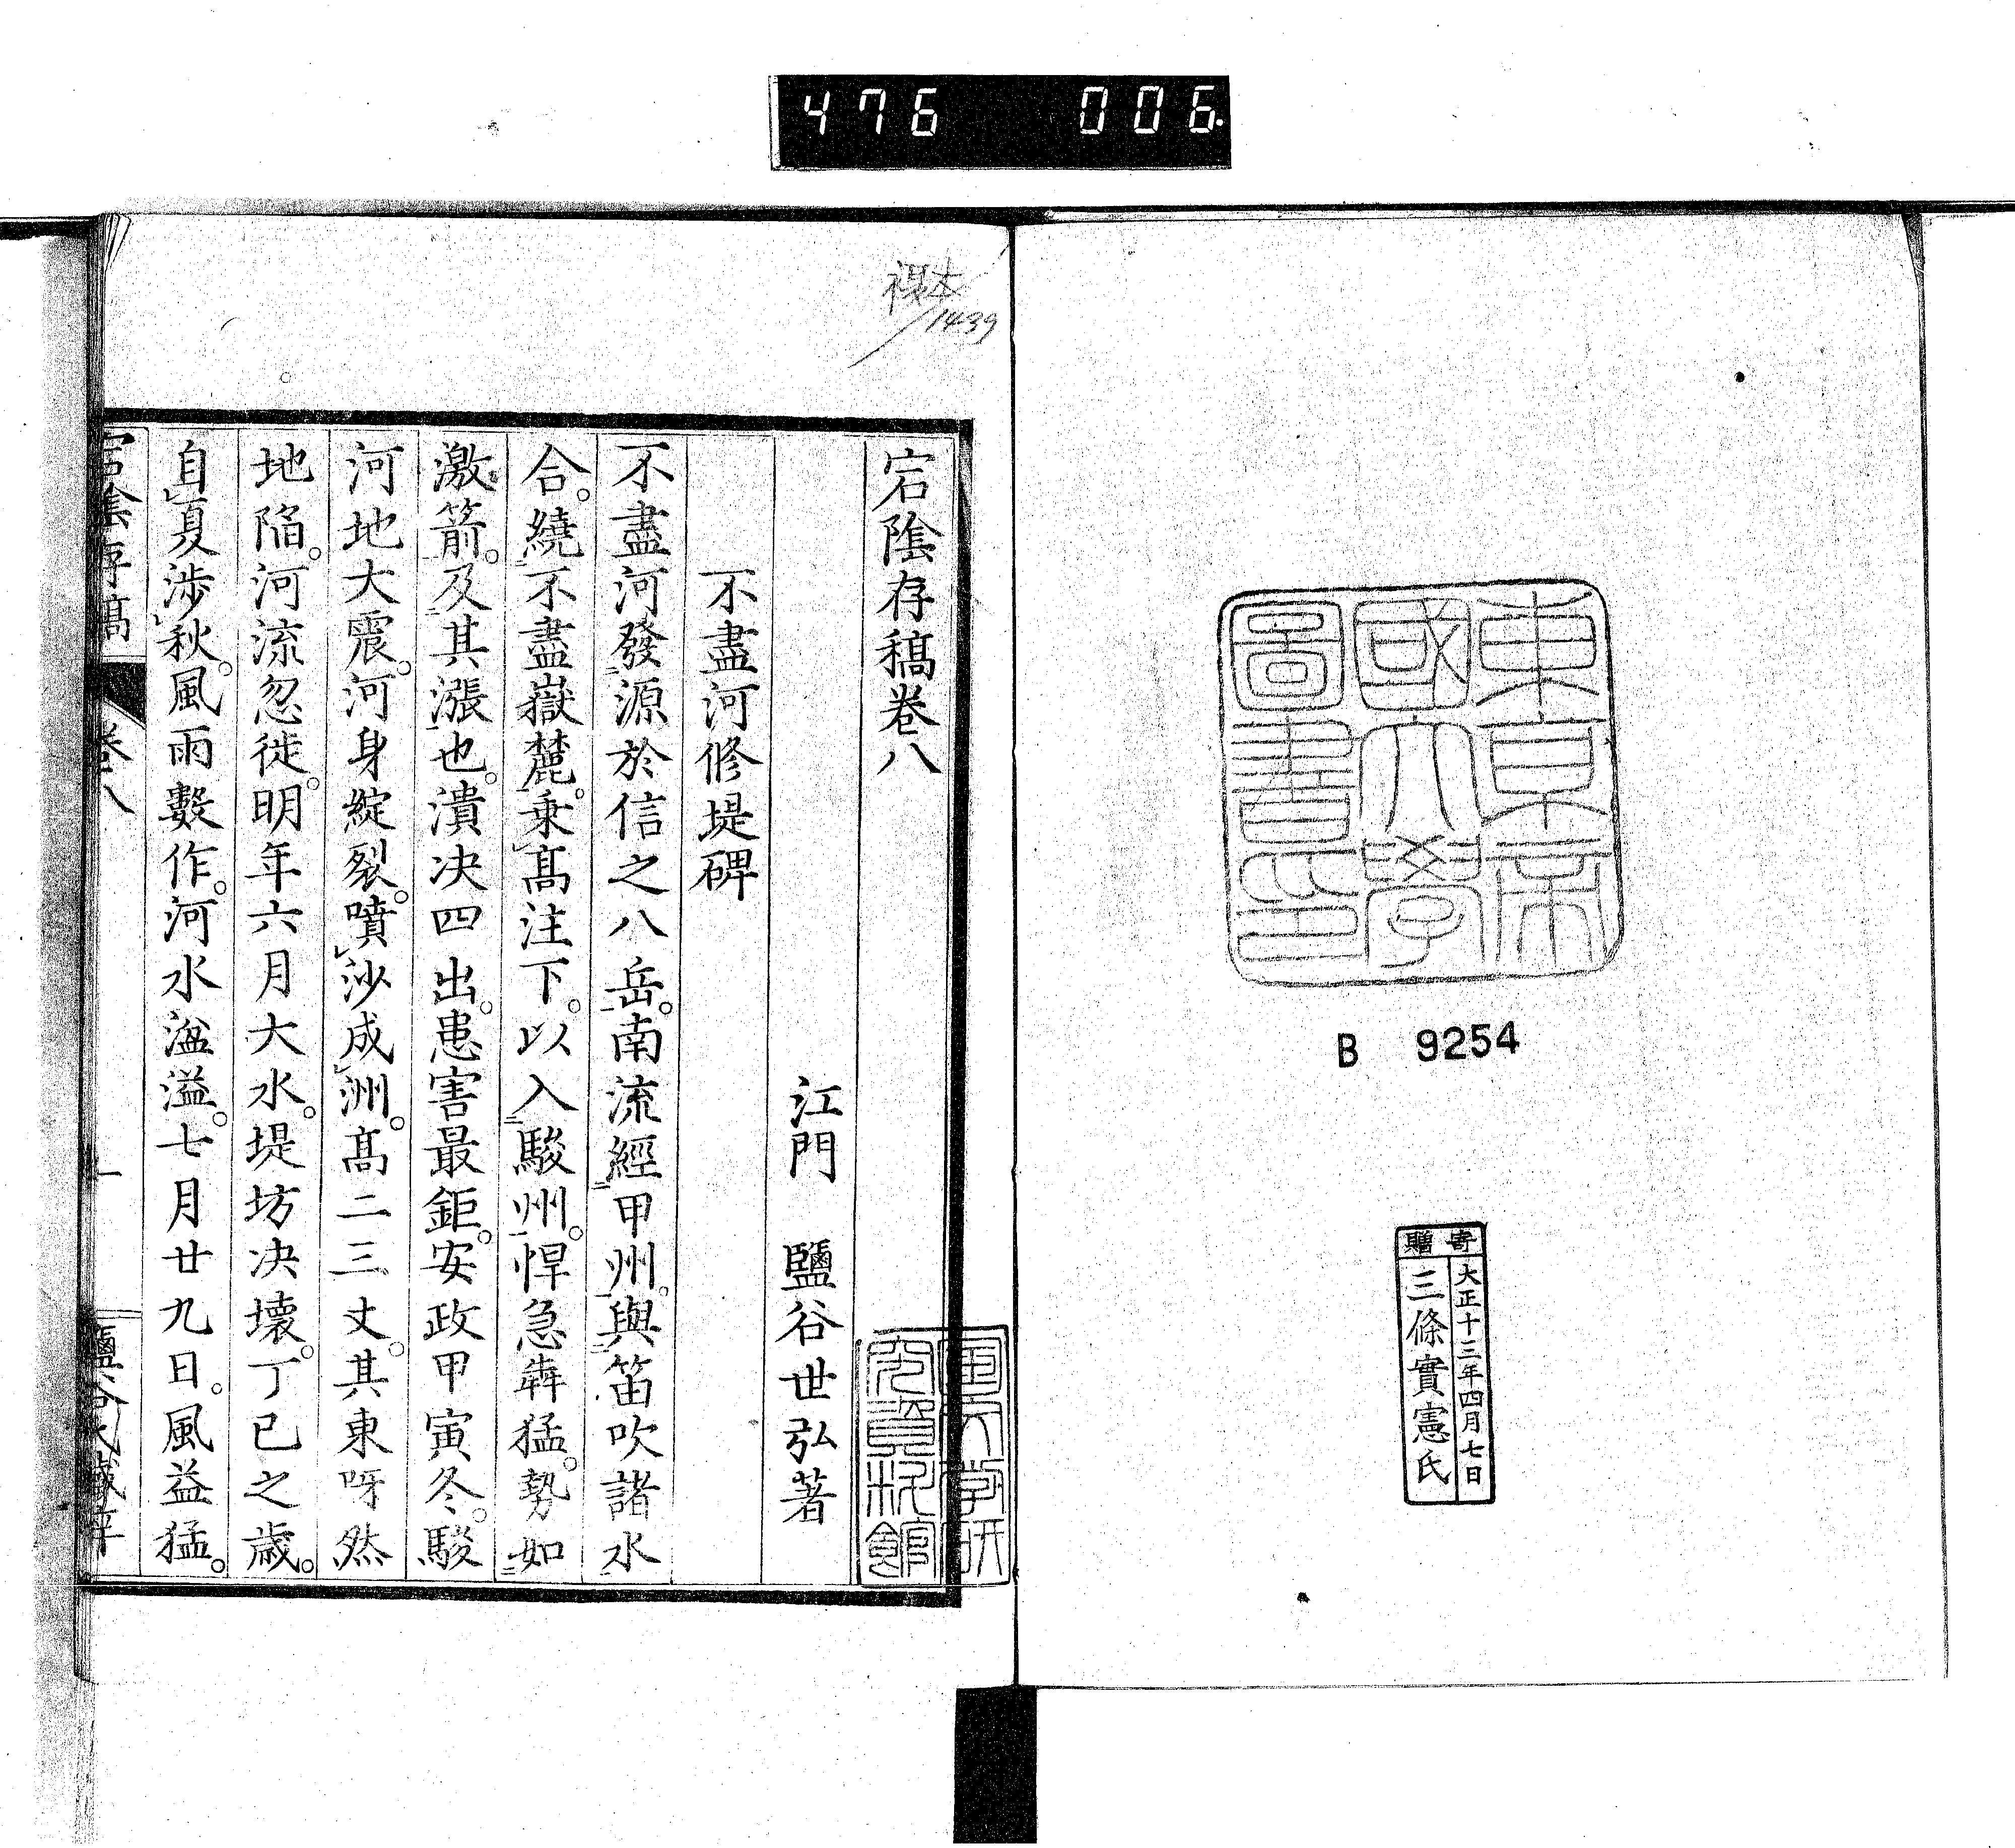 476 006.
東京帝
國大學
圖書印
B 9254
寄贈
大正十三年四月七日
三條實憲氏
複本
1439
宕陰存稿卷八
江門 鹽谷世弘著
不盡河修堤碑
不盡河發源於信之八岳。南流經甲州。與笛吹諸水
合。繞不盡嶽麓。乗髙注下。以入駿州。悍急犇猛。勢如
激箭。及其漲也。潰决四出。患害最鉅。安政甲寅冬。駿
河地大震。河身綻裂。噴沙成洲。髙二三丈。其東呀然
地陷。河流忽徙。明年六月大水。堤坊决壞。丁巳之歳。
自夏涉秋。風雨數作。河水溢溢。七月廿九日。風益猛。
宕陰存稿 卷八 一